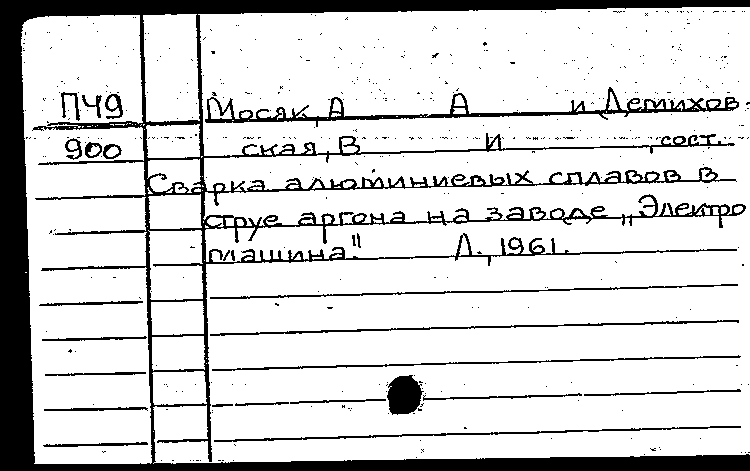 ПЧ9 Мосяк, А А и Демихов-
900 ская, В И , сост.
Сварка алюминиевых сплавов в
струе аргона на заводе „Электро
машина." Л., 1961.